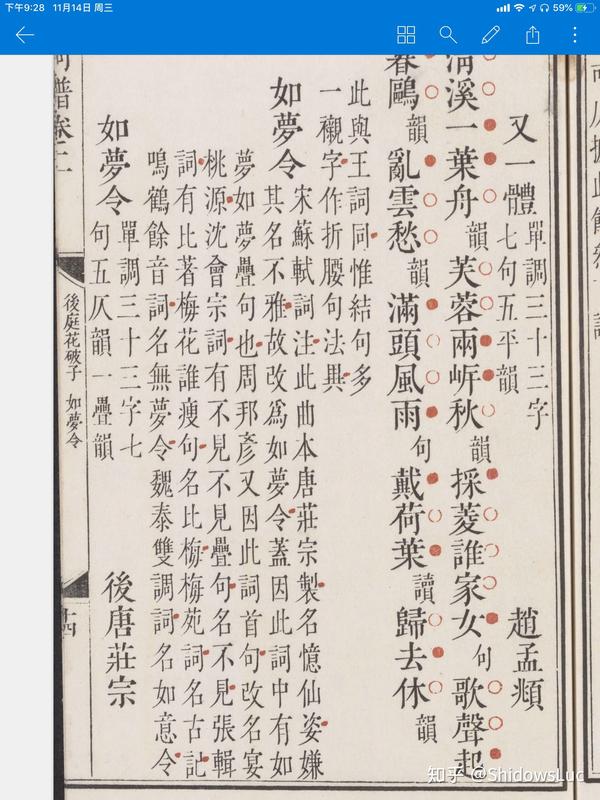 下午9:28 11月14日 周三 59%
又一體
單調三十三字
七句五平韻
趙孟頫
清溪一葉舟韻芙蓉兩岸秋韻採菱誰家女句歌聲起
春鷗韻亂雲愁韻滿頭風雨句戴荷葉讀歸去休韻
此與王詞同惟結句多
一襯字作折腰句法異
如夢令
宋蘇軾詞注此曲本唐莊宗製名憶仙姿嫌
其名不雅故改為如夢令蓋因此詞中有如
夢如夢疊句也周邦彥又因此詞首句改名宴
桃源沈會宗詞有不見不見疊句名不見張輯
詞有比著梅花誰瘦句名比梅梅苑詞名古記
鳴鶴餘音詞名無夢令魏泰雙調詞名如意令
如夢令
單調三十三字七
句五仄韻一疊韻
後唐莊宗
後庭花破子 如夢令
十四
譜卷二
知乎 @ShidowsLuc